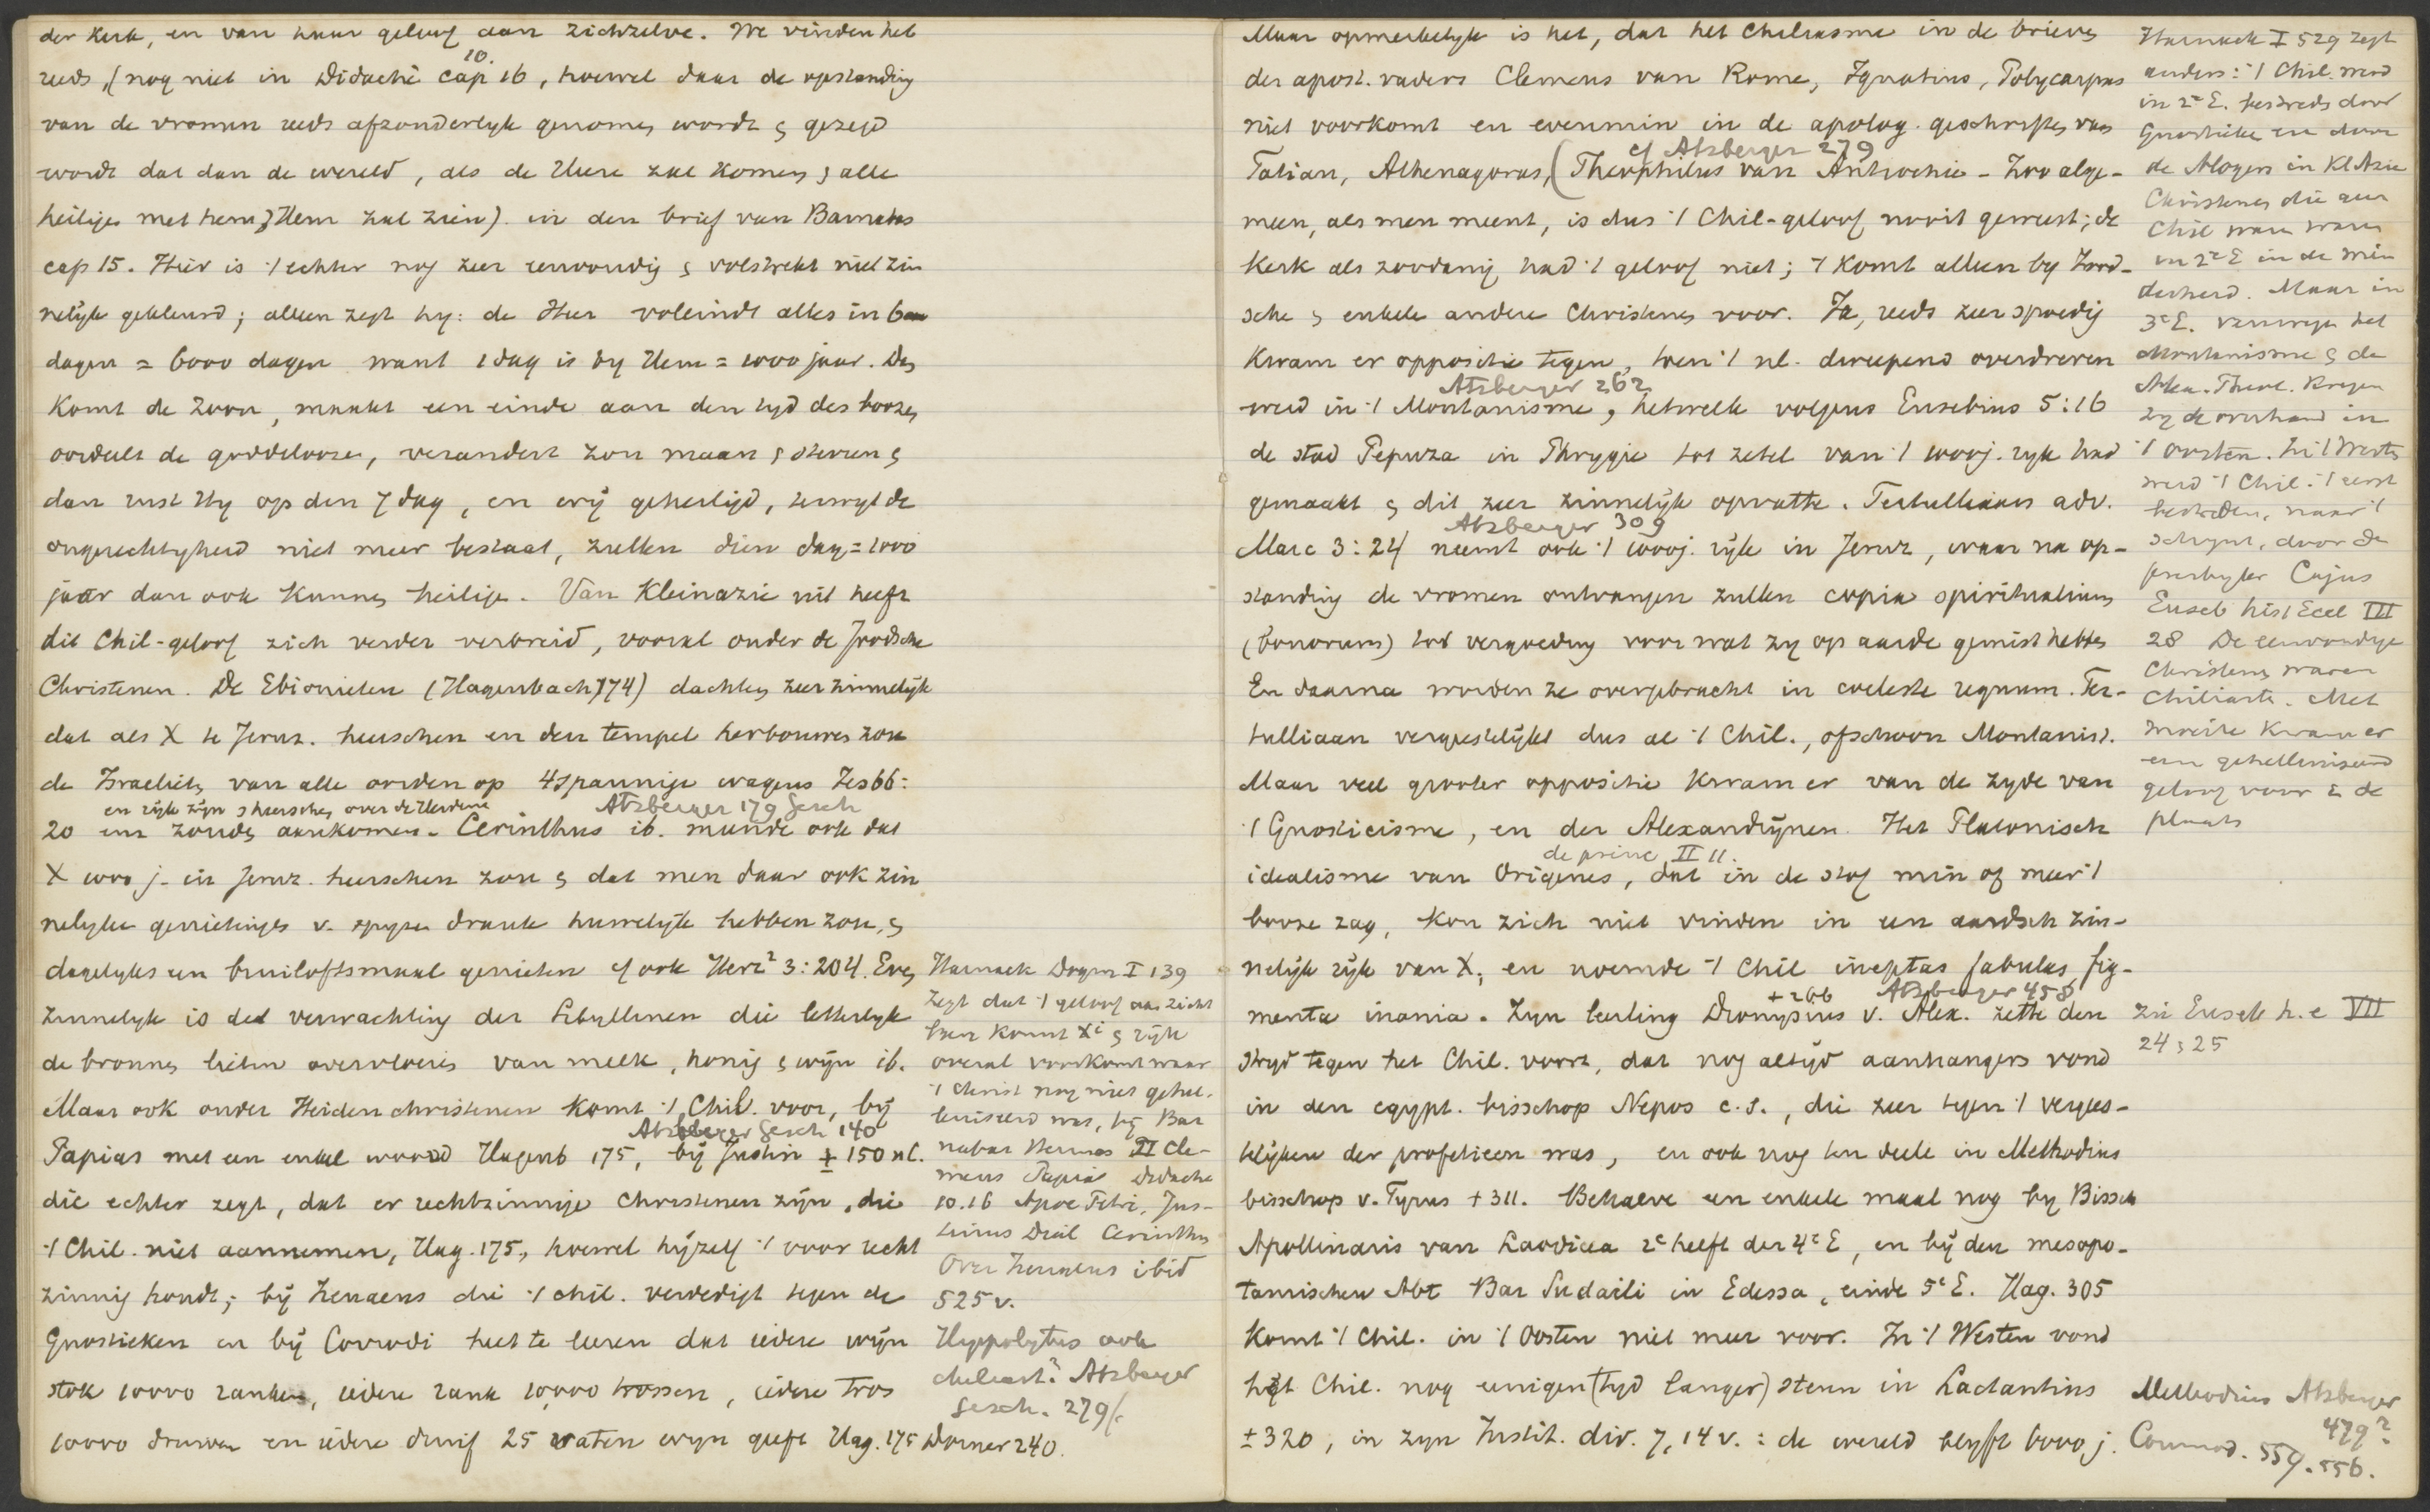 der Kerk, en van haar geloof aan zichzelve. We vinden het
10.
reeds, (nog niet in Didachè cap 16, hoewel daar de opstanding
van de vromen reeds afzonderlyk genomen wordt & gezegd
wordt dat dan de wereld, als de Heere zal komen & alle
heiligen met hem, Hem zal zien) in den brief van Barnabas
cap 15. Hier is 't echter nog zeer eenvoudig & volstrekt niet zin
nelijk gekleurd; alleen zegt hy: de Heer voleindt alles in 6
dagen = 6000 dagen want 1 dag is by Hem = 1000 jaar. Dan
komt de Zoon, maakt een einde aan den tyd des boozen
oordeelt de goddeloozen, verandert zon maan & sterren &
dan rust Hy op den 7 dag, en wij geheiligd, terwyl de
ongerechtigheid niet meer bestaat, zullen dien dag = 1000
jaar dan ook kunnen heiligen. Van Kleinazie uit heeft
dit Chil-geloof zich verder verbreid, vooral onder de Joodsche
Christenen. De Ebionieten (Hagenbach 174) dachten zeer zinnelijk
dat als X te Jeruz. heerschen en den tempel herbouwen zou
de Israelieten van alle oorden op 4spannige wagens Jes 66:
en rijk zijn & heerschen over de Heidenen
Atzberger 179 Gesch
20 enz zouden aankomen. Cerinthus ib. meende ook dat
X 1000 j. in Jeruz. heerschen zou & dat men daar ook zin
nelyke genietingen v. spyze drank huwelyk hebben zou, &
dagelyks een bruiloftsmaal genieten cf ook Herz² 3:204. Even
zinnelyk is de verwachting der Sibyllinen die letterlyk
de bronnen lieten overvloeien van melk, honig & wijn ib.
Maar ook onder Heidenchristenen komt 't Chil. voor, bij
Atzberger Gesch 140
Papias met een enkel woord Hagenb 175, bij Justin ± 150 nC.
die echter zegt, dat er rechtzinnige Christenen zijn, die
't Chil. niet aannemen, Hag. 175, hoewel hijzelf 't voor recht
zinnig houdt; bij Irenaeus die 't chil. verdedigt tegen de
Gnostieken en bij Corrodi heet te leeren dat iedere wijn
stok 10000 ranken, iedere rank 10,000 trossen, iedere tros
10000 druiven en iedere druif 25 vaten wyn geeft Hag. 175 Dorner 240.
Harnack Dogm I 139
zegt dat 't geloof aan zicht
bare komst Xi & rijk
overal voorkomt waar
't Christ nog niet gehel-
leniseerd was, bij Bar
nabas Hermas II Cle-
mens Papias Didache
10.16 Apoc Petri, Jus-
tinus Dial Cerinthus
Over Irenaeus ibid
525 v.
Hyppolytus ook
chiliast? Atzberger
Gesch. 279/.
Maar opmerkelyk is het, dat het Chiliasme in de brieven
der apost. vaders Clemens van Rome, Ignatius, Polycarpus
niet voorkomt en evenmin in de apolog. geschriften van
cf Atzberger 279
Tatian, Athenagoras, (Theophilus van Antiochie - Zoo alge-
meen, als men meent, is dus 't Chil-geloof nooit geweest; de
Kerk als zoodanig had 't geloof niet; 't komt alleen by Jood-
sche & enkele andere Christenen voor. Ja, reeds zeer spoedig
kwam er oppositie tegen, toen 't nl. dweepend overdreven
Atzberger 262
werd in 't Montanisme, hetwelk volgens Eusebius 5:16
de stad Pepuza in Phrygie tot zetel van 't 1000j. ryk had
gemaakt & dit zeer zinnelijk opvatte. Tertullianus adv.
Atzberger 309
Marc 3:24 neemt ook 't 1000j. rijk in Jeruz, waar na op-
standing de vromen ontvangen zullen copia spiritualium
(bonorum) tot vergoeding voor wat zy op aarde gemist hebben
En daarna worden ze overgebracht in coeleste regnum. Ter-
tulliaan vergeestelijkt dus al 't Chil., ofschoon Montanist.
Maar veel grooter oppositie kwam er van de zyde van
't Gnosticisme, en der Alexandrijnen. Het Platonisch
de princ II 11.
idealisme van Origenes, dat in de stof min of meer 't
booze zag, kon zich niet vinden in een aardsch zin-
nelijk rijk van X; en noemde 't Chil ineptas fabulas fig-
+ 266 Atzberger 458
menta inania. Zyn leerling Dionysius v. Alex. zette den
stryd tegen het Chil. voort, dat nog altijd aanhangers vond
in den egypt. bisschop Nepos c.s., die zeer tegen 't verges-
telijken der profetieen was, en ook nog ten deele in Methodius
bisschop v. Tyrus + 311. Behalve een enkele maal nog by Bissch
Apollinaris van Laodicea 2e helft der 4e E, en bij den mesopo-
tamischen Abt Bar Sudaili in Edessa, einde 5e E. Hag. 305
komt 't Chil. in 't Oosten niet meer voor. In 't Westen vond
het Chil. nog eenigen (tyd langer) steun in Lactantius
± 320, in zyn Instit. div. 7, 14 v.: de wereld blyft 6000 j.
Harnack I 529 zegt
anders: 't Chil. werd
in 2e E. bestreden door
Gnostieke en door
de Alogen in Kl Azie
Christenen die geen
Chil waren waren
in 2e E in de min
derheid. Maar in
3e E. vanwege het
Montanisme & de
Alex. Theol. kregen
zy de overhand in
't oosten. In 't Westen
werd 't Chil. 't eerst
bestreden, naar 't
schynt, door de
presbyter Cajus
Euseb hist Eccl III
28 De eenvoudige
Christenen waren
Chiliasten. Met
moeite kwam er
een gehelleniseerd
geloof voor in de
plaats
Zie Euseb h. e VII
24 & 25
Methodius Atzberger
479?
Commod. 559. 556.